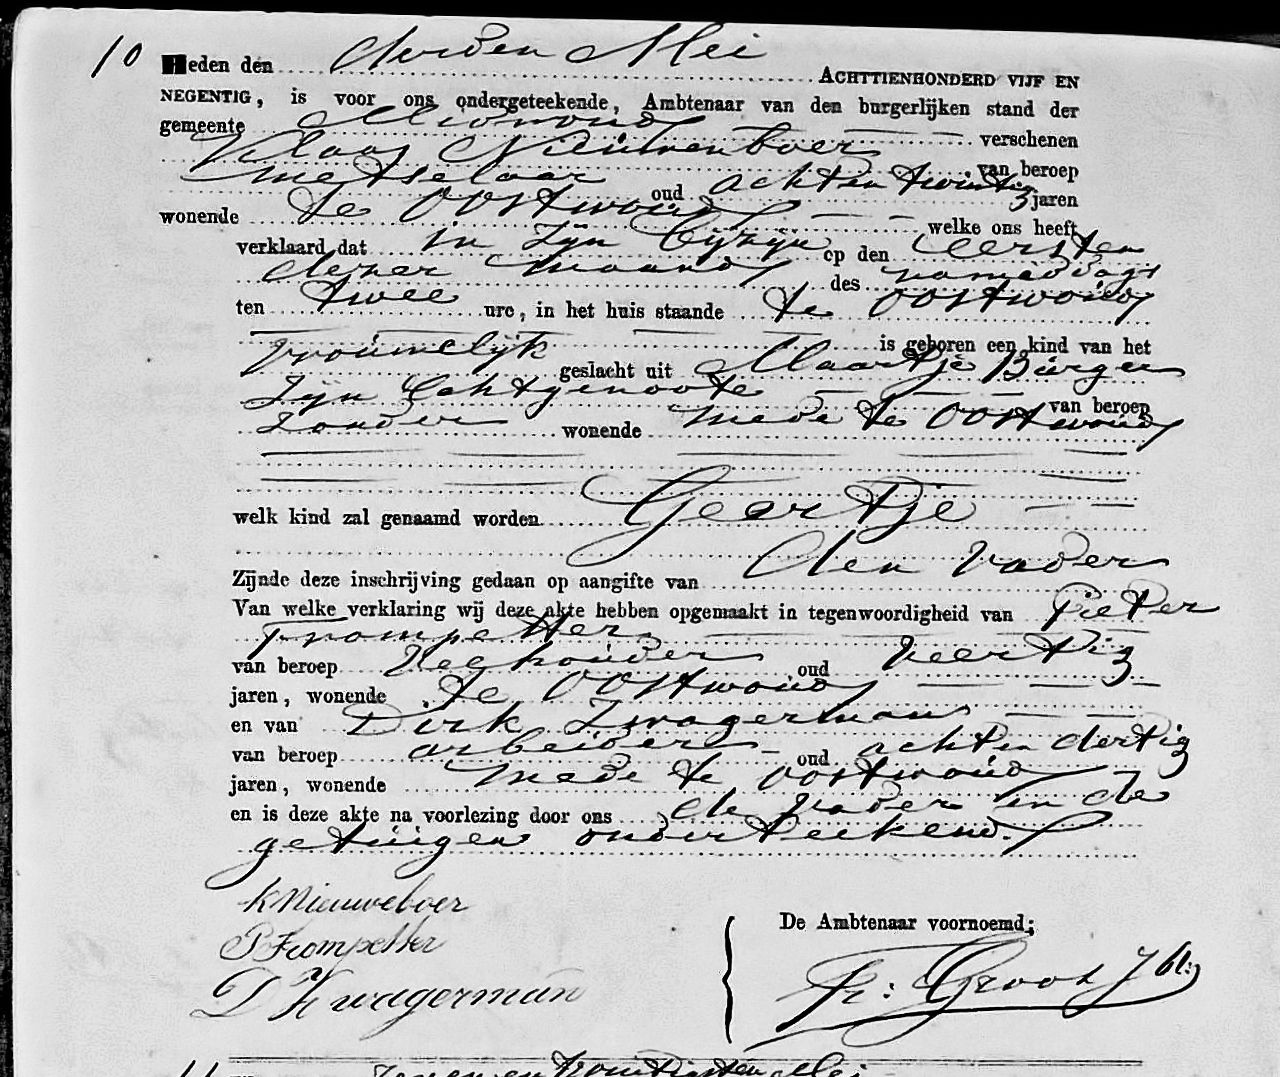 10
Heden den derden Mei ACHTTIENHONDERD VIJF EN
NEGENTIG, is voor ons ondergeteekende, Ambtenaar van den burgerlijken stand der
gemeente Midwoud verschenen
Klaas Nieuwenboer van beroep
metselaar oud achten twintig jaren
wonende te Oostwoud welke ons heeft
verklaard dat in zijn bijzijn op den eersten
dezer maand des namiddags
ten twee ure, in het huis staande te Oostwoud
is geboren een kind van het
vrouwelijk geslacht uit Maartje Burger
zijn Echtgenoote van beroep
zonder wonende mede te Oostwoud
welk kind zal genaamd worden Geertje
Zijnde deze inschrijving gedaan op aangifte van den vader
Van welke verklaring wij deze akte hebben opgemaakt in tegenwoordigheid van Pieter
Trompetter
van beroep Veehouder oud veertig
jaren, wonende te Oostwoud
en van Dirk Zwagerman
van beroep arbeider oud achten dertig
jaren, wonende mede te Oostwoud
en is deze akte na voorlezing door ons de vader en de
getuigen onderteekend.
K Nieuweboer
P Trompetter
D Zwagerman
De Ambtenaar voornoemd;
Groot
11 Zeven en twintigsten Mei